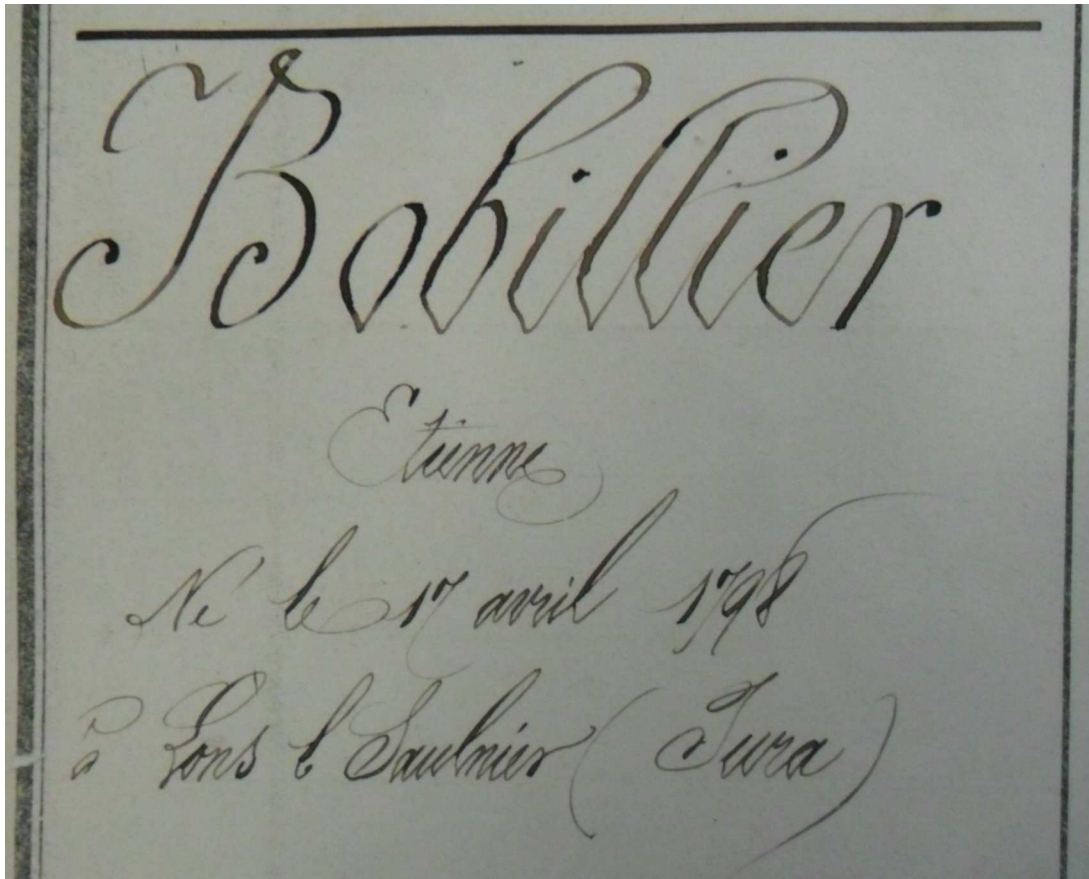 Bobillier
Etienne
Né le 17 avril 1798
à Lons l Saulnier (Jura)